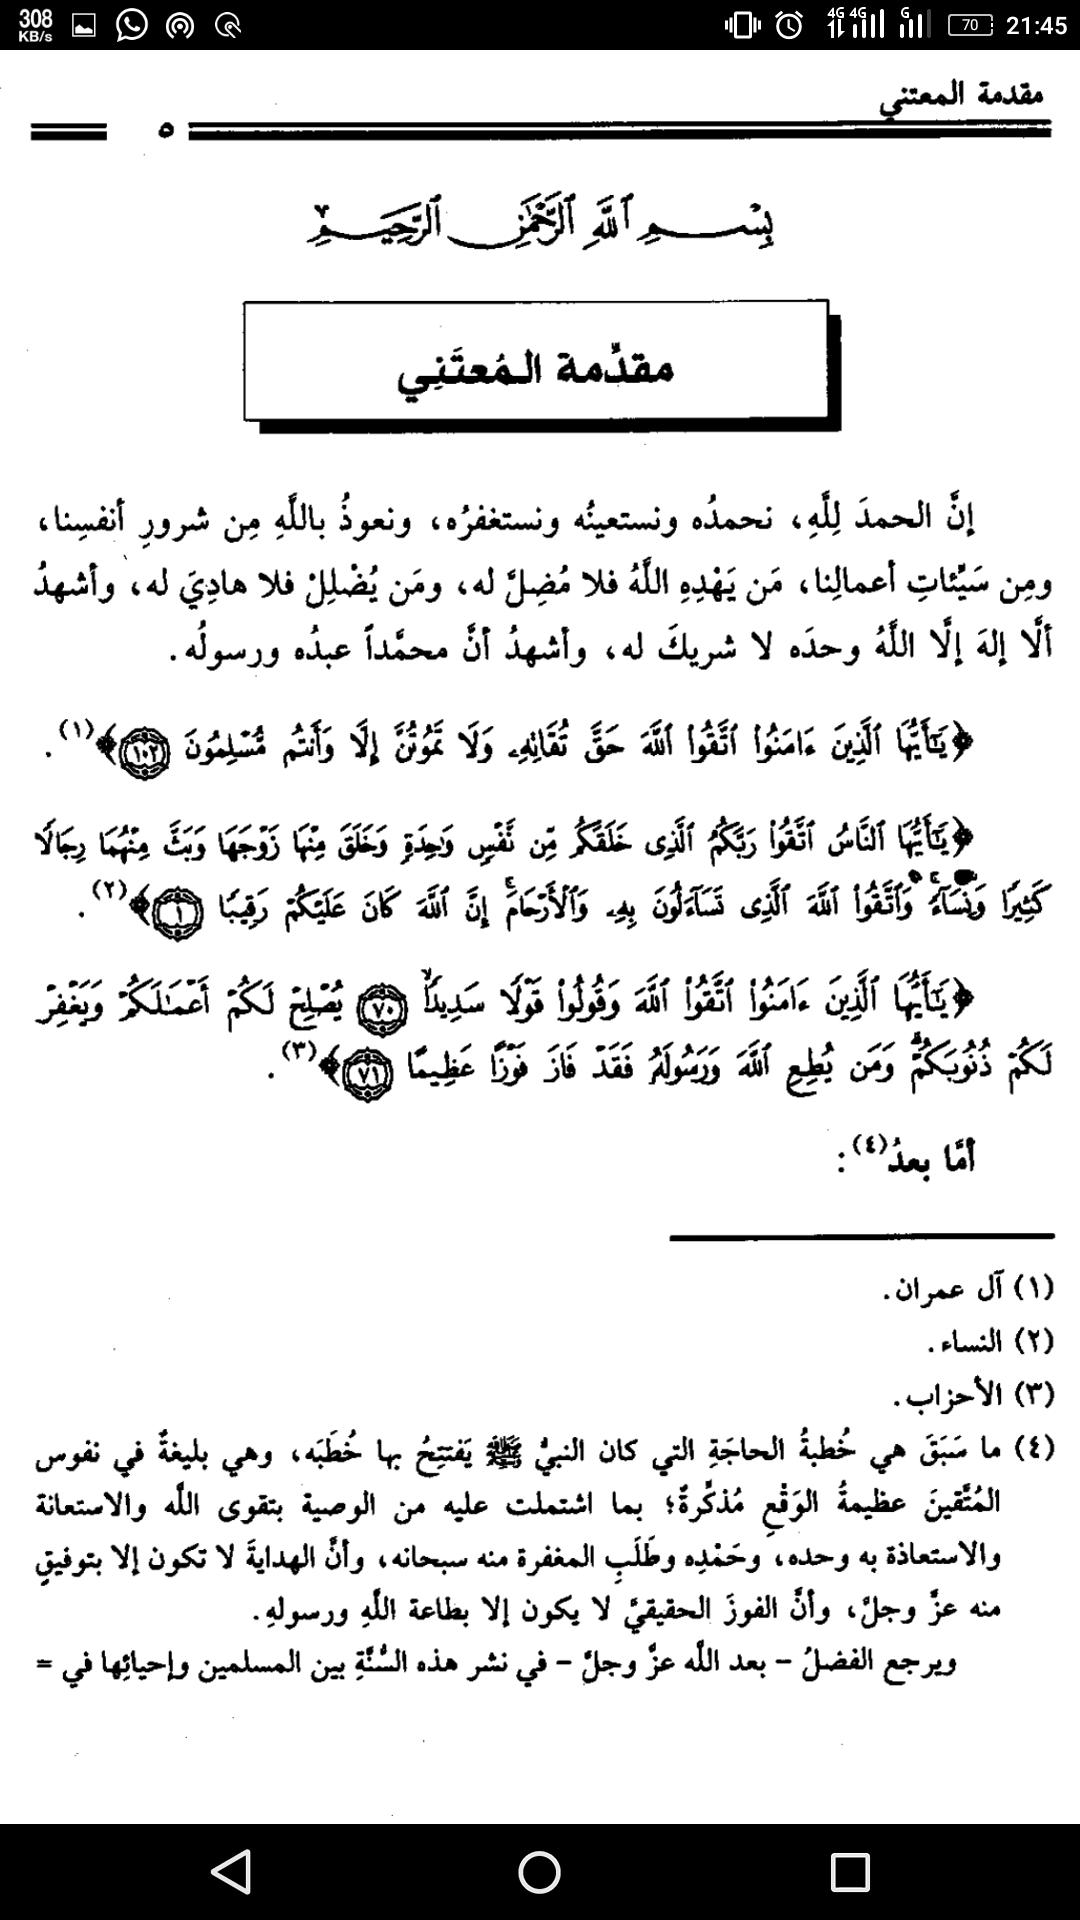 308
KB/s
4G 4G G 70 21:45
مقدمة المعتني
٥
بِسْمِ ٱللَّهِ ٱلرَّحْمَٰنِ ٱلرَّحِيمِ
مقدِّمة المُعتَنِي
إنَّ الحمدَ لِلَّهِ، نحمدُه ونستعينُه ونستغفرُه، ونعوذُ باللَّهِ مِن شرورِ أنفسِنا،
ومِن سَيِّئاتِ أعمالِنا، مَن يَهْدِهِ اللَّهُ فلا مُضِلَّ له، ومَن يُضْلِلْ فلا هادِيَ له، وأشهدُ
ألَّا إلهَ إلَّا اللَّهُ وحدَه لا شريكَ له، وأشهدُ أنَّ محمَّداً عبدُه ورسولُه.
﴿يَٰٓأَيُّهَا ٱلَّذِينَ ءَامَنُوا۟ ٱتَّقُوا۟ ٱللَّهَ حَقَّ تُقَاتِهِۦ وَلَا تَمُوتُنَّ إِلَّا وَأَنتُم مُّسْلِمُونَ ١٠٢﴾(١).
﴿يَٰٓأَيُّهَا ٱلنَّاسُ ٱتَّقُوا۟ رَبَّكُمُ ٱلَّذِى خَلَقَكُم مِّن نَّفْسٍ وَٰحِدَةٍ وَخَلَقَ مِنْهَا زَوْجَهَا وَبَثَّ مِنْهُمَا رِجَالًا
كَثِيرًا وَنِسَآءً ۚ وَٱتَّقُوا۟ ٱللَّهَ ٱلَّذِى تَسَآءَلُونَ بِهِۦ وَٱلْأَرْحَامَ ۚ إِنَّ ٱللَّهَ كَانَ عَلَيْكُمْ رَقِيبًا ١﴾(٢).
﴿يَٰٓأَيُّهَا ٱلَّذِينَ ءَامَنُوا۟ ٱتَّقُوا۟ ٱللَّهَ وَقُولُوا۟ قَوْلًا سَدِيدًا ٧٠ يُصْلِحْ لَكُمْ أَعْمَٰلَكُمْ وَيَغْفِرْ
لَكُمْ ذُنُوبَكُمْ ۗ وَمَن يُطِعِ ٱللَّهَ وَرَسُولَهُۥ فَقَدْ فَازَ فَوْزًا عَظِيمًا ٧١﴾(٣).
أمَّا بعدُ(٤):
(١) آل عمران.
(٢) النساء.
(٣) الأحزاب.
(٤) ما سَبَقَ هي خُطبةُ الحاجَةِ التي كان النبيُّ ﷺ يَفتتِحُ بها خُطَبَه، وهي بليغةٌ في نفوس
المُتَّقينَ عظيمةُ الوَقْعِ مُذكِّرةٌ؛ بما اشتملت عليه من الوصية بتقوى اللَّه والاستعانة
والاستعاذة به وحده، وحَمْدِه وطَلَبِ المغفرة منه سبحانه، وأنَّ الهدايةَ لا تكون إلا بتوفيقٍ
منه عزَّ وجلَّ، وأنَّ الفوزَ الحقيقيَّ لا يكون إلا بطاعة اللَّهِ ورسولهِ.
ويرجع الفضلُ – بعد اللَّه عزَّ وجلَّ – في نشر هذه السُّنَّةِ بين المسلمين وإحيائِها في =